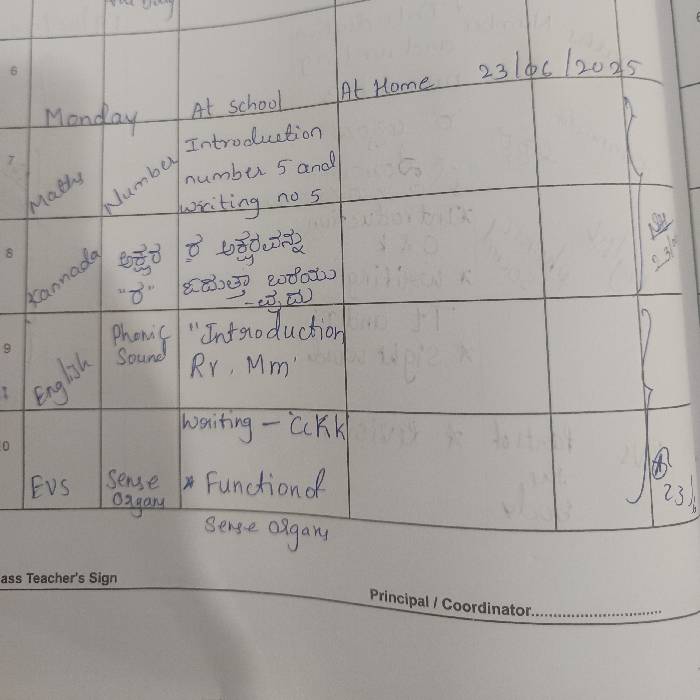 6
Monday At school At Home 23/06/2025
7
Maths Number Introduction
number 5 and
writing no 5
8
Kannada ಅಕ್ಷರ ಠ ಅಕ್ಷರವನ್ನು
"ಠ" ಓದುತ್ತಾ ಬರೆಯು
-ವುದು
9
English Phonic "Introduction
Sound Rr, Mm"
Writing - CcKk
0
EVS Sense * Function of
Organs Sense Organs
23/6
ass Teacher's Sign
Principal / Coordinator